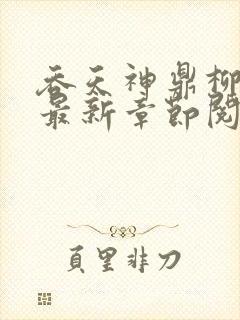 吞天神鼎柳
最新章节阅
页里非刀